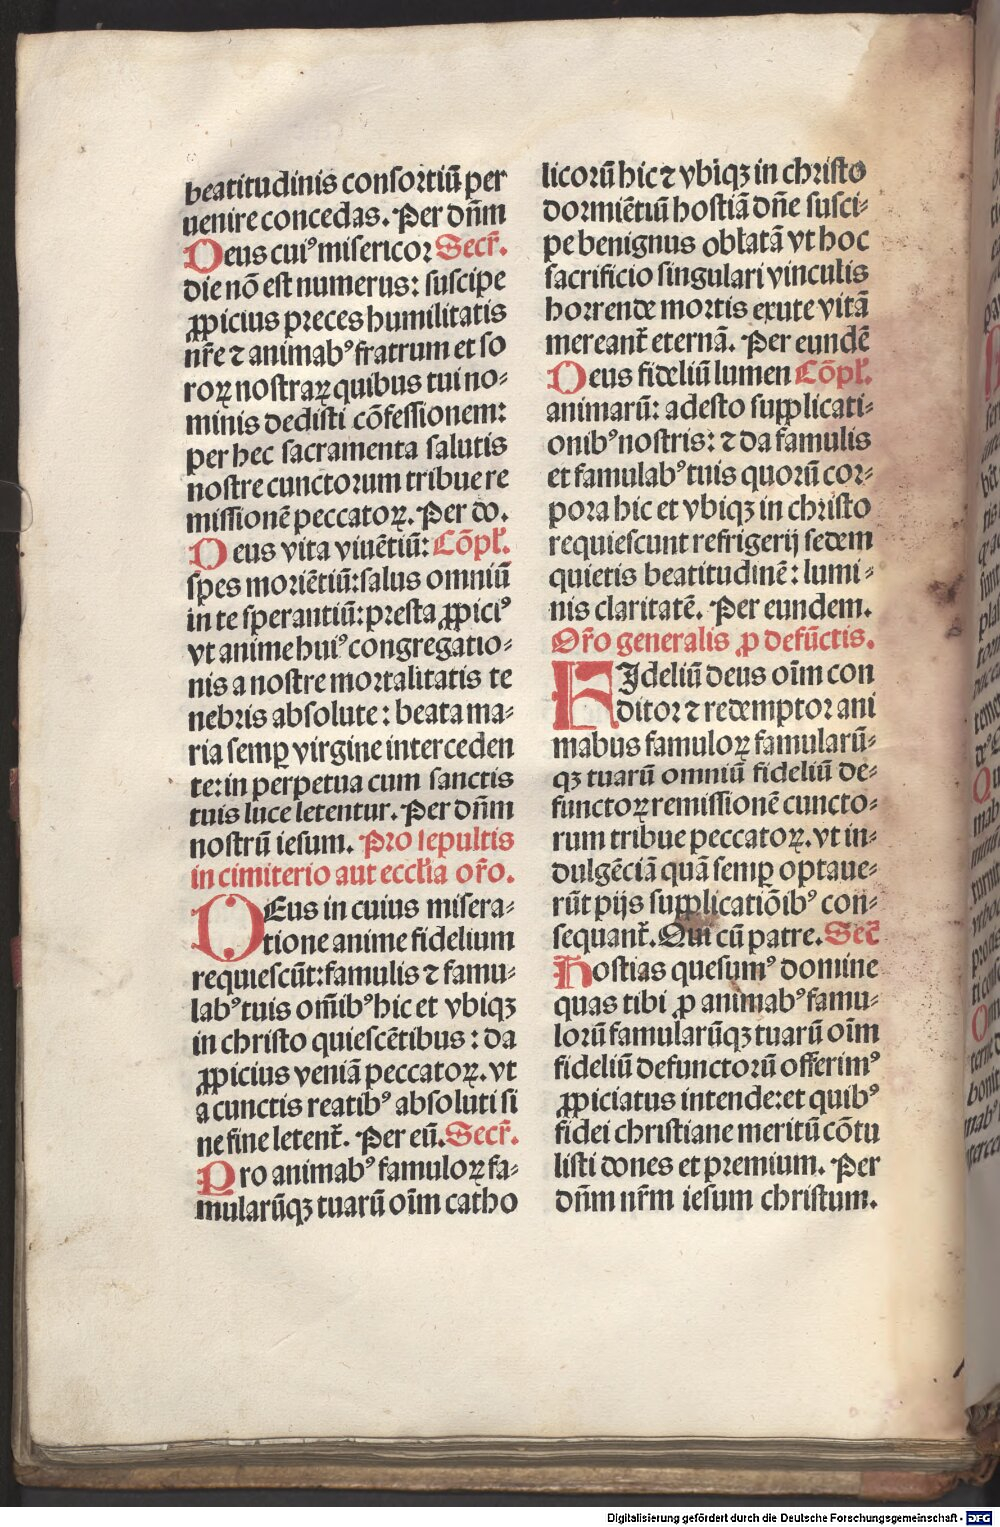 beatitudinis consortiū per
uenire concedas. Per dn̄m
Deus cuiꝰ misericor Secr̄.
die nō est numerus: suscipe
ꝓpicius preces humilitatis
nr̄e ⁊ animabꝰ fratrum et so
roꝝ nostraꝝ quibus tui no⸗
minis dedisti cōfessionem:
per hec sacramenta salutis
nostre cunctorum tribue re
missionē peccatoꝝ. Per do.
Deus vita viuētiū: Cōpl̄.
spes moriētiū: salus omniū
in te sperantiū: presta ꝓpiciꝰ
vt anime huiꝰ congregatio⸗
nis a nostre mortalitatis te
nebris absolute: beata ma⸗
ria semꝑ virgine interceden
te: in perpetua cum sanctis
tuis luce letentur. Per dn̄m
nostrū iesum. Pro sepultis
in cimiterio aut eccl̄ia or̄o.
DEus in cuius misera⸗
tione anime fidelium
requiescūt: famulis ⁊ famu⸗
labꝰ tuis om̄ibꝰ hic et vbiqꝫ
in christo quiescētibus: da
ꝓpicius veniā peccatoꝝ. vt
a cunctis reatibꝰ absoluti si
ne fine letent̄. Per eū. Secr̄.
Pro animabꝰ famuloꝝ fa⸗
mularūqꝫ tuarū oīm catho
licorū hic ⁊ vbiqꝫ in christo
dormiētiū hostiā dn̄e susci⸗
pe benignus oblatā vt hoc
sacrificio singulari vinculis
horrende mortis exute vitā
mereant̄ eternā. Per eundē
Deus fideliū lumen Cōpl̄.
animarū: adesto supplicati⸗
onibꝰ nostris: ⁊ da famulis
et famulabꝰ tuis quorū cor⸗
pora hic et vbiqꝫ in christo
requiescunt refrigerij sedem
quietis beatitudinē: lumi⸗
nis claritatē. Per eundem.
Or̄o generalis ꝓ defūctis.
FIdeliū deus oīm con
ditor ⁊ redemptor ani
mabus famuloꝝ famularū⸗
qꝫ tuarū omniū fideliū de⸗
functoꝝ remissionē cuncto⸗
rum tribue peccatoꝝ. vt in⸗
dulgēciā quā semꝑ optaue⸗
rūt pijs supplicatiōibꝰ con⸗
sequant̄. Qui cū patre. Secr̄
Hostias quesumꝰ domine
quas tibi ꝓ animabꝰ famu⸗
lorū famularūqꝫ tuarū oīm
fideliū defunctorū offerimꝰ
ꝓpiciatus intende: et quibꝰ
fidei christiane meritū cōtu
listi dones et premium. Per
dn̄m nr̄m iesum christum.
Digitalisierung gefördert durch die Deutsche Forschungsgemeinschaft - DFG